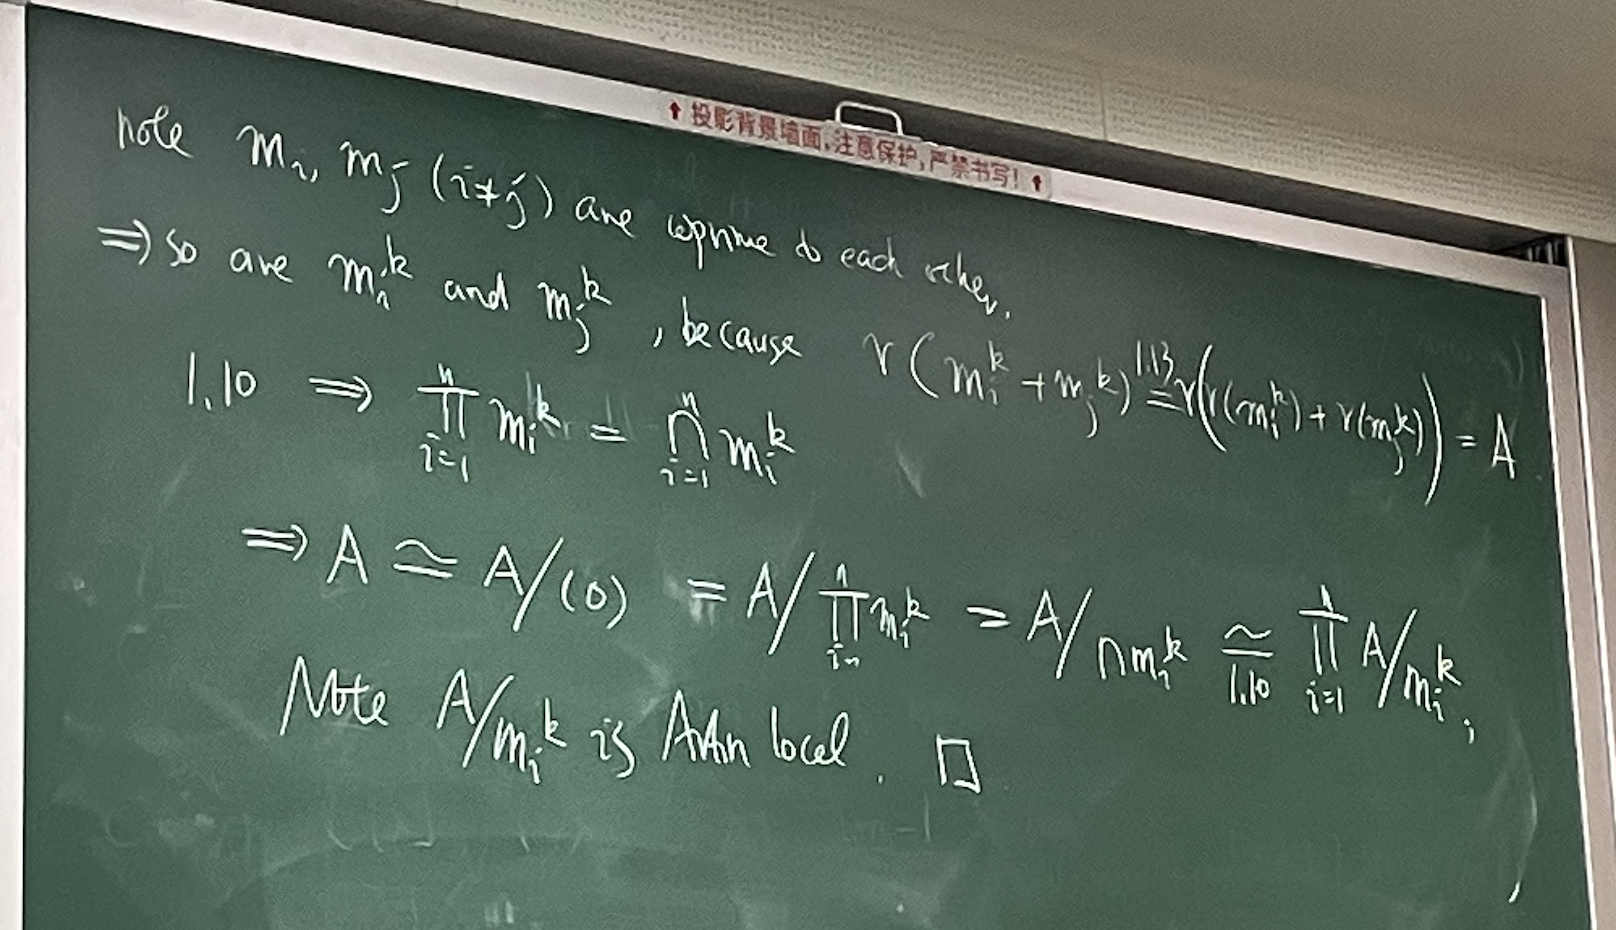 ↑ 投影背景墙面,注意保护,严禁书写! ↑
note m_i, m_j (i≠j) are coprime to each other.
⇒ so are m_i^k and m_j^k, because r(m_i^k + m_j^k) \overset{1.13}{=} r(r(m_i^k) + r(m_j^k)) = A.
1.10 ⇒ \prod_{i=1}^n m_i^k = \bigcap_{i=1}^n m_i^k
⇒ A ≃ A/(0) = A/\prod_{i=1}^n m_i^k = A/∩m_i^k \underset{1.10}{≃} \prod_{i=1}^n A/m_i^k,
Note A/m_i^k is Artin local. □